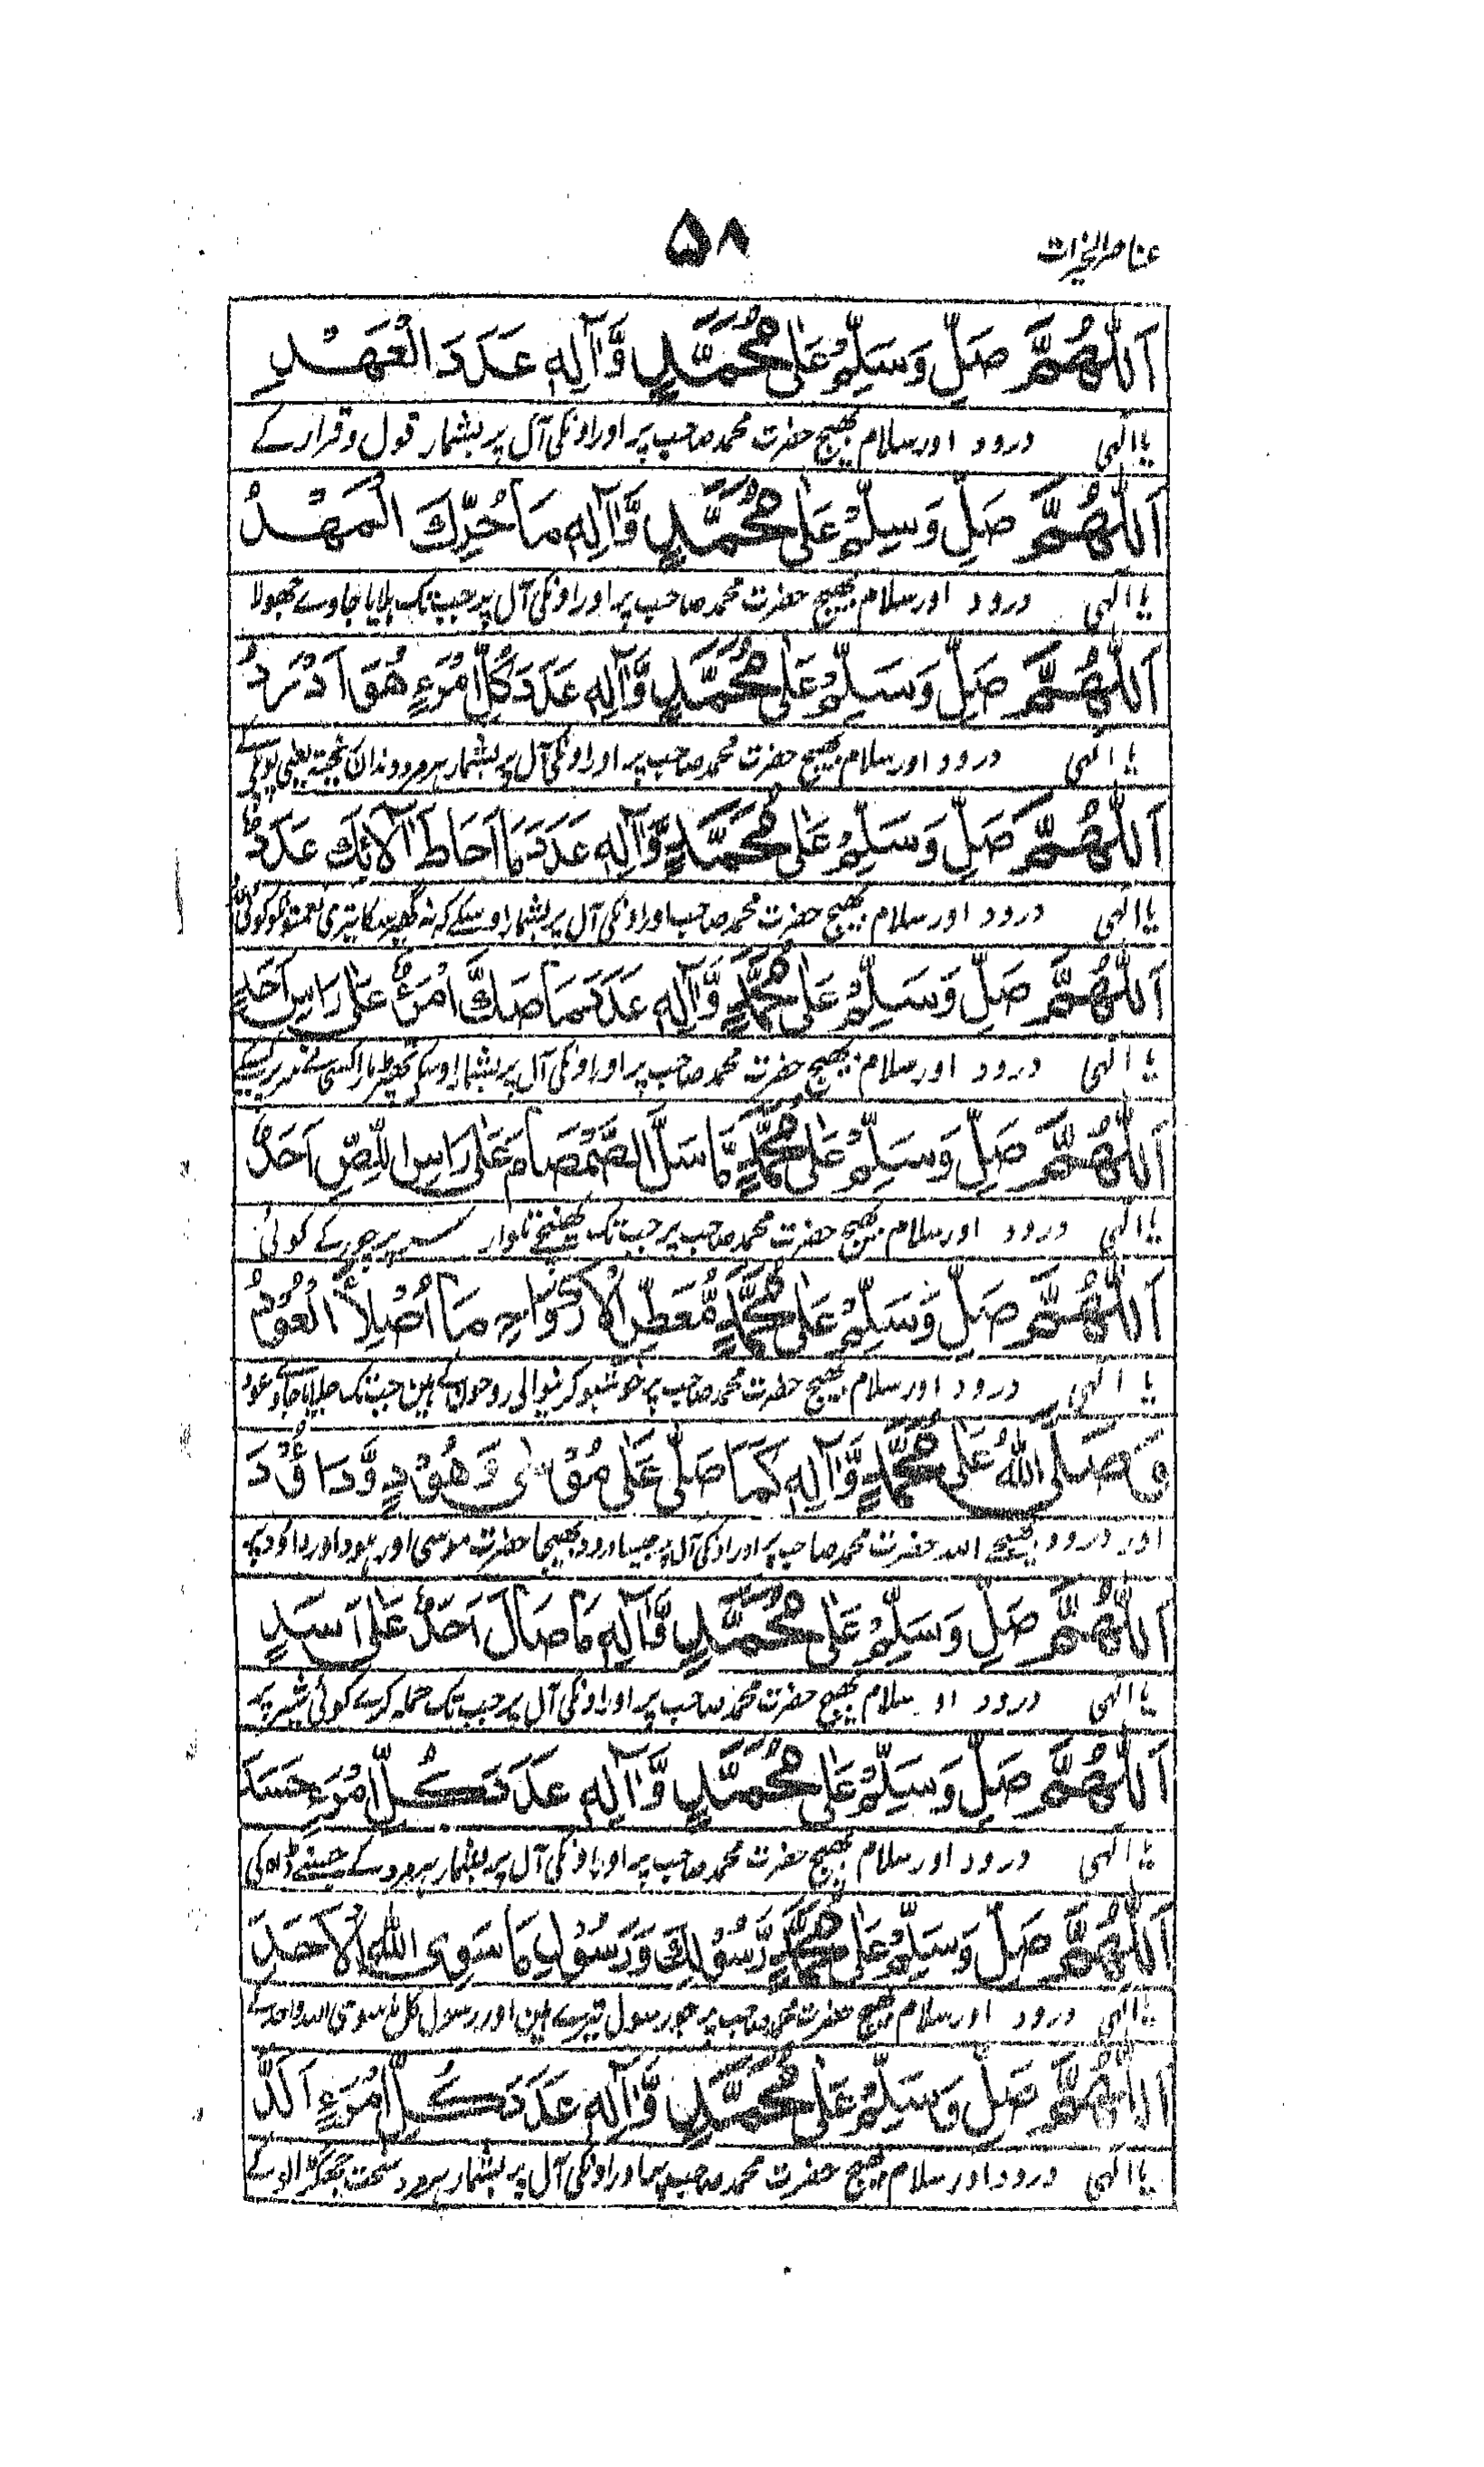 عناصر الخیرات
۵۸
اَللّٰهُمَّ صَلِّ وَسَلِّمْ عَلٰى مُحَمَّدٍ وَّاٰلِهٖ عَدَدَ الْعَهْدِ
یا الٰہی درود اور سلام بھیج حضرت محمد صاحب پر اور اونکی آل پر بشمار قول و قرار کے
اَللّٰهُمَّ صَلِّ وَسَلِّمْ عَلٰى مُحَمَّدٍ وَّاٰلِهٖ مَا حُرِّكَ الْمَهْدُ
یا الٰہی درود اور سلام بھیج حضرت محمد صاحب پر اور اونکی آل پر جب تک ہلایا جاوے جھولا
اَللّٰهُمَّ صَلِّ وَسَلِّمْ عَلٰى مُحَمَّدٍ وَّاٰلِهٖ عَدَدَ كُلِّ امْرَءٍ هُوَ اَدْرَدُ
یا الٰہی درود اور سلام بھیج حضرت محمد صاحب پر اور اونکی آل پر بشمار ہر مرد دندان یعنی
اَللّٰهُمَّ صَلِّ وَسَلِّمْ عَلٰى مُحَمَّدٍ وَّاٰلِهٖ عَدَدَ مَا اَحَاطَ اٰلَائِكَ عَدَدٌ
یا الٰہی درود اور سلام بھیج حضرت محمد صاحب اور اونکی آل پر بشمار اوسکے کہ نہ تیری نعمتونکو کوئی
اَللّٰهُمَّ صَلِّ وَسَلِّمْ عَلٰى مُحَمَّدٍ وَّاٰلِهٖ عَدَدَ مَا صَكَّ امْرَءٌ عَلٰى رَاسِ اَحَدٍ
یا الٰہی درود اور سلام بھیج حضرت محمد صاحب پر اور اونکی آل پر بشمار اوسکے تھپڑ مارا کسی نے
اَللّٰهُمَّ صَلِّ وَسَلِّمْ عَلٰى مُحَمَّدٍ مَّا سَلَّ الصَّمْصَامَ عَلٰى رَاسِ اللِّصِّ اَحَدٌ
یا الٰہی درود اور سلام بھیج حضرت محمد صاحب پر جب تک کھینچے تلوار سر پر چور کے کوئی
اَللّٰهُمَّ صَلِّ وَسَلِّمْ عَلٰى مُحَمَّدٍ مُّعَطِّرِ الْاَرْوَاحِ مَا اُصْلِأَ الْعُوْدُ
یا الٰہی درود اور سلام بھیج حضرت محمد صاحب پر خوشبو کرنیوالی روحوں کے ہین جب تک جلایا جاوے عود
وَصَلَّى اللّٰهُ عَلٰى مُحَمَّدٍ وَّاٰلِهٖ كَمَا صَلّٰى عَلٰى مُوْسٰى وَهُوْدٍ وَّدَاوٗدَ
اور درود بھیجے اللہ حضرت محمد صاحب پر اور اونکی آل پر جیسا درود بھیجا حضرت موسی اور ہود اور داؤد پر
اَللّٰهُمَّ صَلِّ وَسَلِّمْ عَلٰى مُحَمَّدٍ وَّاٰلِهٖ مَا صَالَ اَحَدٌ عَلٰى اَسَدٍ
یا الٰہی درود او سلام بھیج حضرت محمد صاحب پر اور اونکی آل پر جب تک حملہ کرے کوئی شیر پر
اَللّٰهُمَّ صَلِّ وَسَلِّمْ عَلٰى مُحَمَّدٍ وَّاٰلِهٖ عَدَدَ كُلِّ امْرَءٍ حَسَدَ
یا الٰہی درود اور سلام بھیج حضرت محمد صاحب پر اور اونکی آل پر بشمار ہر مرد کے جسنے ڈاہ کی
اَللّٰهُمَّ صَلِّ وَسَلِّمْ عَلٰى مُحَمَّدٍ رَّسُوْلِكَ وَرَسُوْلِ مَا سِوَى اللّٰهِ الْاَحَدِ
یا الٰہی درود اور سلام بھیج حضرت محمد صاحب پر جو رسول تیرے ہین اور رسول کل ما سوی اللہ واحد کے
اَللّٰهُمَّ صَلِّ وَسَلِّمْ عَلٰى مُحَمَّدٍ وَّاٰلِهٖ عَدَدَ كُلِّ امْرَءٍ اَلَدَّ
یا الٰہی درود اور سلام بھیج حضرت محمد صاحب پر اور اونکی آل پر بشمار ہر مرد سخت جھگڑالو کے